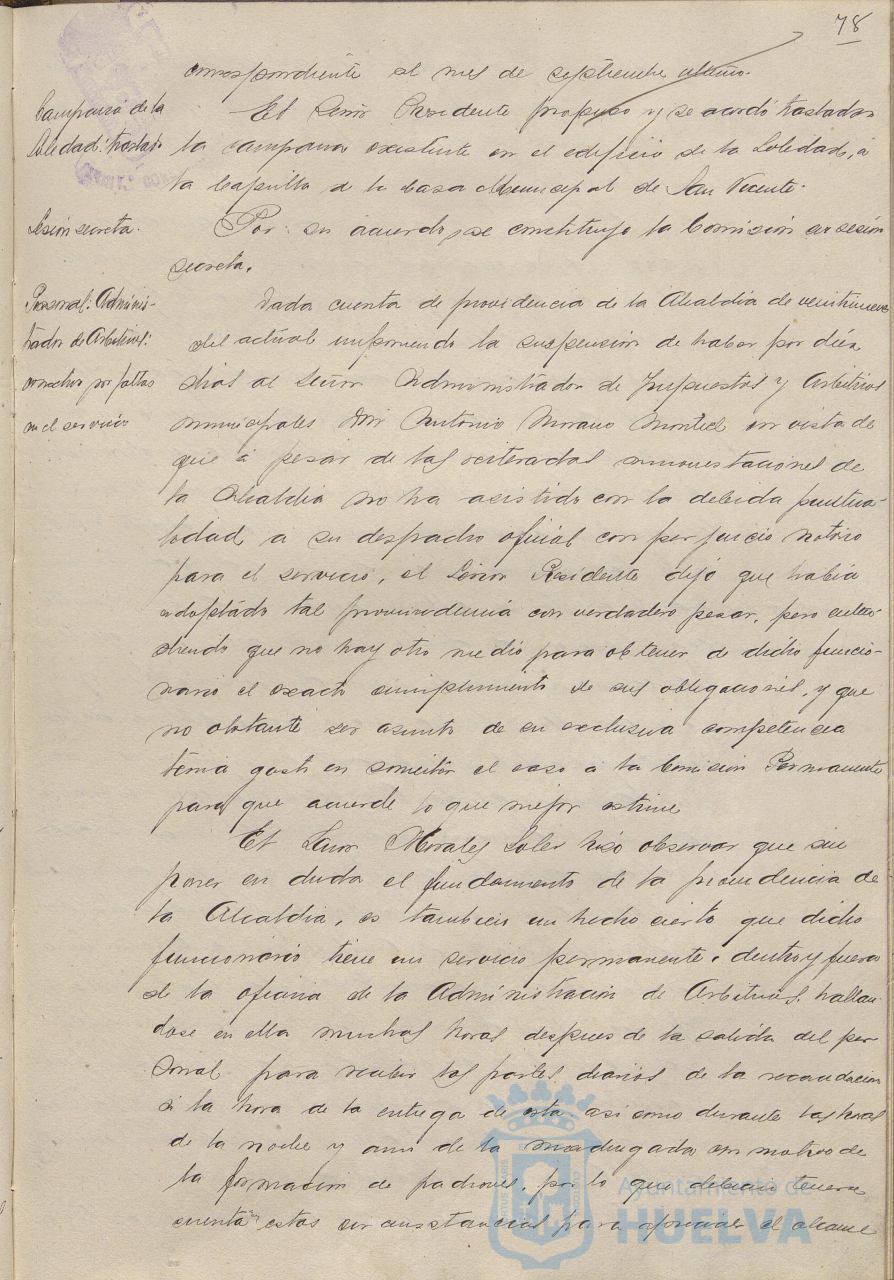 78
correspondiente al mes de septiembre último.
Campana de la
Soledad: traslado
El Señor Presidente propuso y se acordó trasladar
la campana existente en el edificio de la Soledad, á
la Capilla de la Casa Municipal de San Vicente.
Sesión secreta.
Por su acuerdo, se constituyó la Comisión en sesión
secreta.
Personal: Adminis-
trador de Arbitrios:
correctivo por faltas
en el servicio
Dada cuenta de providencia de la Alcaldia de veintinueve
del actual imponiendo la suspensión de haber por diez
dias al Señor Administrador de Impuestos y Arbitrios
municipales Don Antonio Moreno Montiel en vista de
que á pesar de las reiteradas amonestaciones de
la Alcaldia no ha asistido con la debida puntua-
lidad a su despacho oficial con perjuicio notorio
para el servicio, el Señor Presidente dijo que habia
adoptado tal providencia con verdadero pesar, pero enten-
diendo que no hay otro medio para obtener de dicho funcio-
nario el exacto cumplimiento de sus obligaciones, y que
no obstante ser asunto de su exclusiva competencia
tenia gusto en someter el caso á la Comision Permanente
para que acuerde lo que mejor estime
El Señor Morales Soler hizo observar que sin
poner en duda el fundamento de la providencia de
la Alcaldia, es tambien un hecho cierto que dicho
funcionario tiene un servicio permanente dentro y fuera
de la oficina de la Administracion de Arbitrios, hallan-
dose en ella muchas horas despues de la salida del per-
sonal para recibir los partes diarios de la recaudacion
á la hora de la entrega de esta asi como durante las horas
de la noche y aun de la madrugada con motivo de
la formacion de padrones, por lo que debian tenerse en
cuenta estas circunstancias para apreciar el alcance
Ayuntamiento de
HUELVA